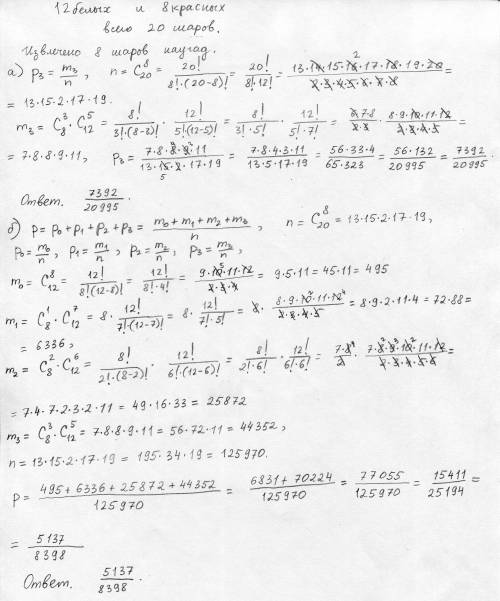 12 белых и 8 красных
всего 20 шаров.
Извлечено 8 шаров наугад.
а) p₃ = m₃/n, n = C₂₀⁸ = 20!/(8!·(20-8)!) = 20!/(8!·12!) = (13·14·15·16·17·18·19·20)/(1·2·3·4·5·6·7·8) =
= 13·15·2·17·19.
m₃ = C₈³·C₁₂⁵ = 8!/(3!·(8-3)!) · 12!/(5!(12-5)!) = 8!/(3!·5!) · 12!/(5!·7!) = (6·7·8)/(2·3) · (8·9·10·11·12)/(2·3·4·5) =
= 7·8·8·9·11, p₃ = (7·8·8·9·11)/(13·15·2·17·19) = (7·8·4·3·11)/(13·5·17·19) = (56·33·4)/(65·323) = (56·132)/20995 = 7392/20995.
Ответ. 7392/20995.
б) p = p₀+p₁+p₂+p₃ = (m₀+m₁+m₂+m₃)/n, n = C₂₀⁸ = 13·15·2·17·19,
p₀ = m₀/n, p₁ = m₁/n, p₂ = m₂/n, p₃ = m₃/n,
m₀ = C₁₂⁸ = 12!/(8!(12-8)!) = 12!/(8!·4!) = (9·10·11·12)/(2·3·4) = 9·5·11 = 45·11 = 495
m₁ = C₈¹·C₁₂⁷ = 8· 12!/(7!(12-7)!) = 8· 12!/(7!·5!) = 8· (8·9·10·11·12)/(2·3·4·5) = 8·9·2·11·4 = 72·88 =
= 6336,
m₂ = C₈²·C₁₂⁶ = 8!/(2!·(8-2)!) · 12!/(6!·(12-6)!) = 8!/(2!·6!) · 12!/(6!·6!) = (7·8)/2 · (7·8·9·10·11·12)/(2·3·4·5·6) =
= 7·4·7·2·3·2·11 = 49·16·33 = 25872
m₃ = C₈³·C₁₂⁵ = 7·8·8·9·11 = 56·72·11 = 44352,
n = 13·15·2·17·19 = 195·34·19 = 125970.
p = (495+6336+25872+44352)/125970 = (6831+70224)/125970 = 77055/125970 = 15411/25194 =
= 5137/8398
Ответ. 5137/8398.